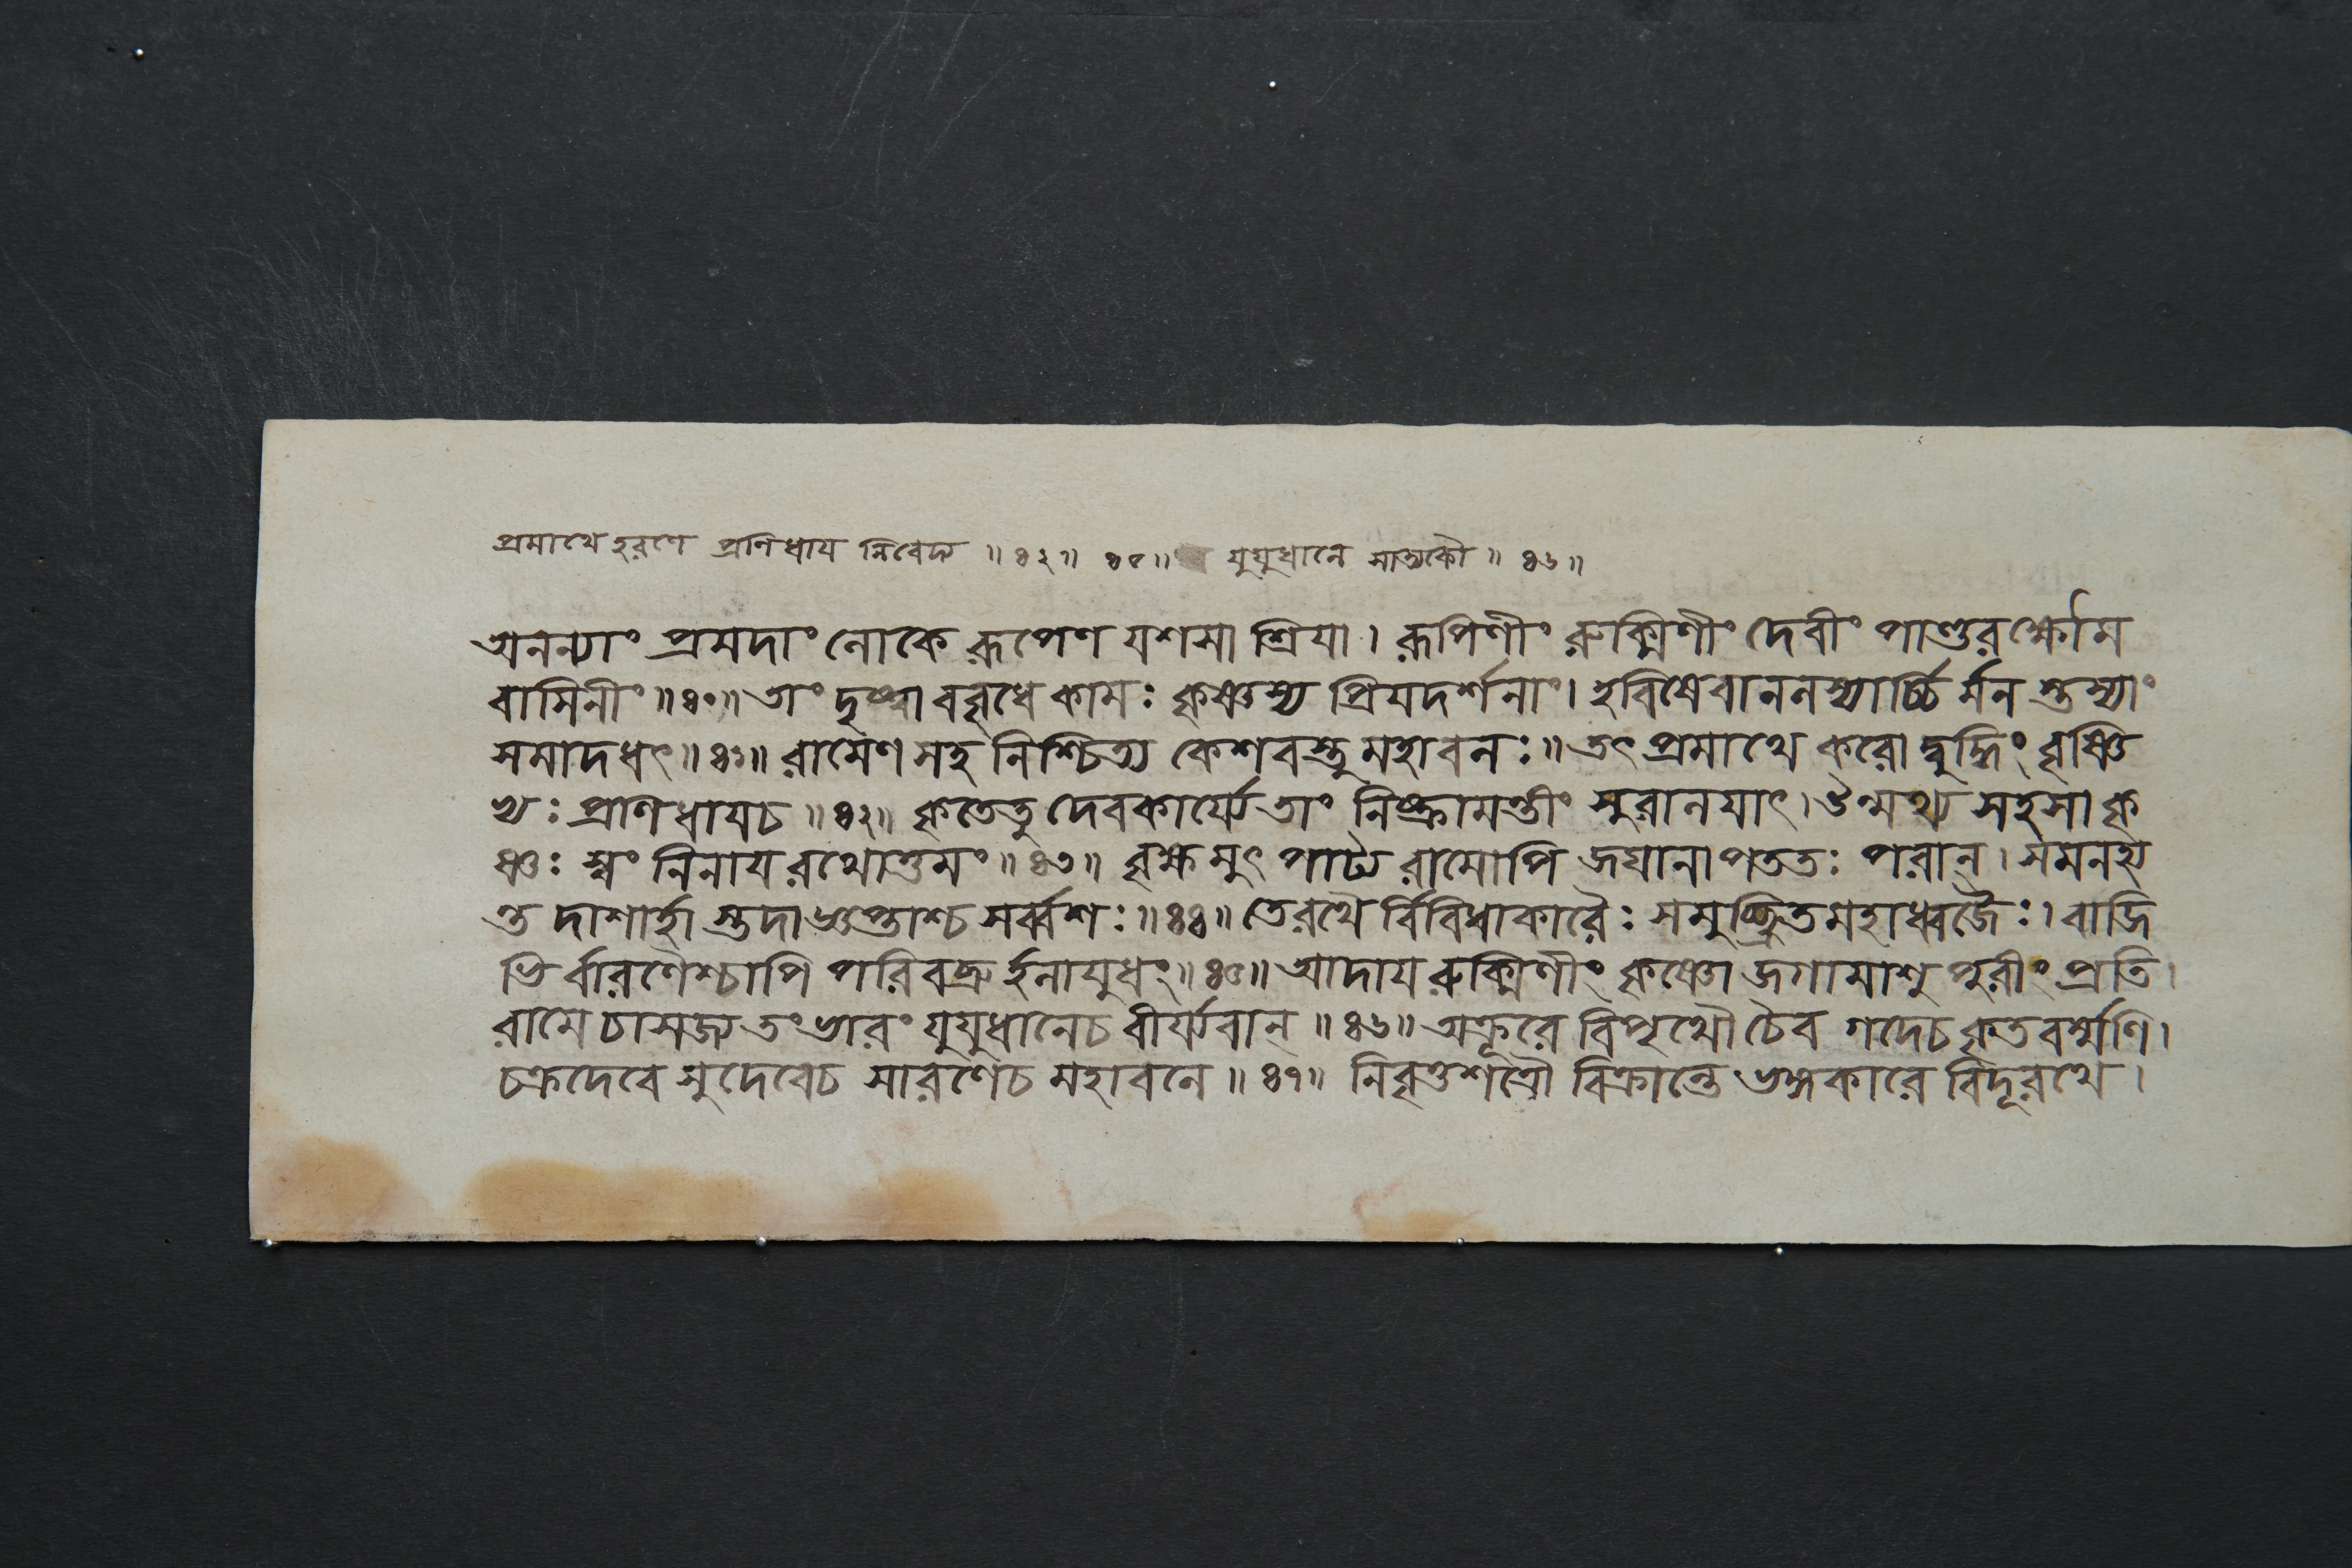 প্রমাথে হরণে প্রনিধায় নিবেদ্য ॥ ৪২ ॥ ৪৫ ॥ যুযুধানে সাত্যকৌ ॥ ৪৬ ॥
অনন্যাং প্রমদাং লোকে রূপেণ যশসা শ্রিয়া । রূপিণীং রুক্মিণীং দেবীং পাণ্ডুরক্ষৌম
বাসিনীং ॥ ৪০ ॥ তাং দৃষ্ট্বা ববৃধে কামঃ কৃষ্ণস্য প্রিয়দর্শনাং । হবিষেবানলস্যার্চ্চি র্মন স্তস্যাং
সমাদধৎ ॥ ৪১ ॥ রামেণ সহ নিশ্চিত্য কেশবস্তু মহাবলঃ ॥ তৎ প্রমাথে করোদ্বুদ্ধিং বৃষ্ণি
ভ্যঃ প্রণিধায়চ ॥ ৪২ ॥ কৃতেতু দেবকার্য্যে তাং নিষ্ক্রামন্তীং সুরালয়াৎ । উন্মথ্য সহসা কৃ
ষ্ণঃ স্বং নিনায় রথোত্তমং ॥ ৪৩ ॥ বৃক্ষ মুৎ পাট্য রামোপি জঘানাপততঃ পরান্ । সমনহ্য
ন্ত দাশার্হা স্তদাজ্ঞপ্তাশ্চ সর্ব্বশঃ ॥ ৪৪ ॥ তেরথৈ র্বিবিধাকারৈঃ সমুচ্ছ্রিতমহাধ্বজৈঃ । বাজি
ভি র্বারণৈশ্চাপি পরিবব্রু র্হলায়ুধং ॥ ৪৫ ॥ আদায় রুক্মিণীং কৃষ্ণো জগামাশু পুরীং প্রতি ।
রামে চাসজ্য তং ভারং যুযুধানেচ বীর্য্যবান্ ॥ ৪৬ ॥ অক্রূরে বিপৃথৌ চৈব গদেচ কৃতবর্ম্মণি ।
চক্রদেবে সুদেবেচ সারণেচ মহাবলে ॥ ৪৭ ॥ নিবৃত্তশত্রৌ বিক্রান্তে ভঙ্গকারে বিদূরথে ।